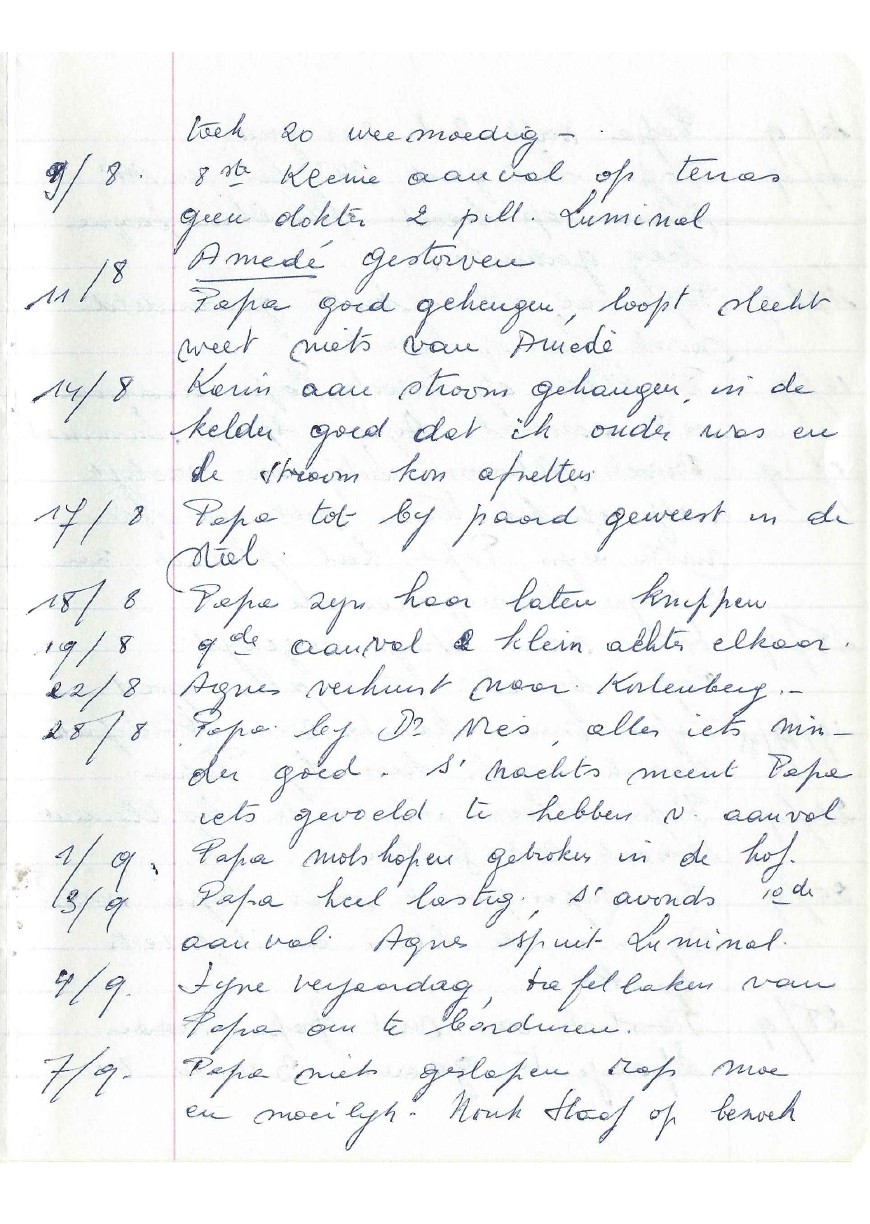 toch zo weemoedig -
9/8. 8ste Kleine aanval op terras
geen dokter 2 pill. Luminal
Amedé gestorven
11/8 Papa goed geheugen, loopt slecht
weet niets van Amedé
14/8 Karin aan stroom gehangen, in de
kelder goed dat ik onder was en
de stroom kon afzetten
17/8 Papa tot by paard geweest in de
stal.
18/8 Papa zyn haar laten knippen
19/8 9de aanval 2 klein achter elkaar.
22/8 Agnes verhuist naar Kortenberg. -
28/8 Papa by Dr Nies, alles iets min-
der goed. S' nachts meent Papa
iets gevoeld te hebben v. aanval
1/9 Papa molshopen gebroken in de hof.
3/9 Papa heel lastig, s' avonds 10de
aanval. Agnes spuit Luminal.
4/9. Fyne verjaardag, tafellaken van
Papa om te borduren.
7/9. Papa niets geslapen moe
en moeilyk. Nonk Staaf op bezoek